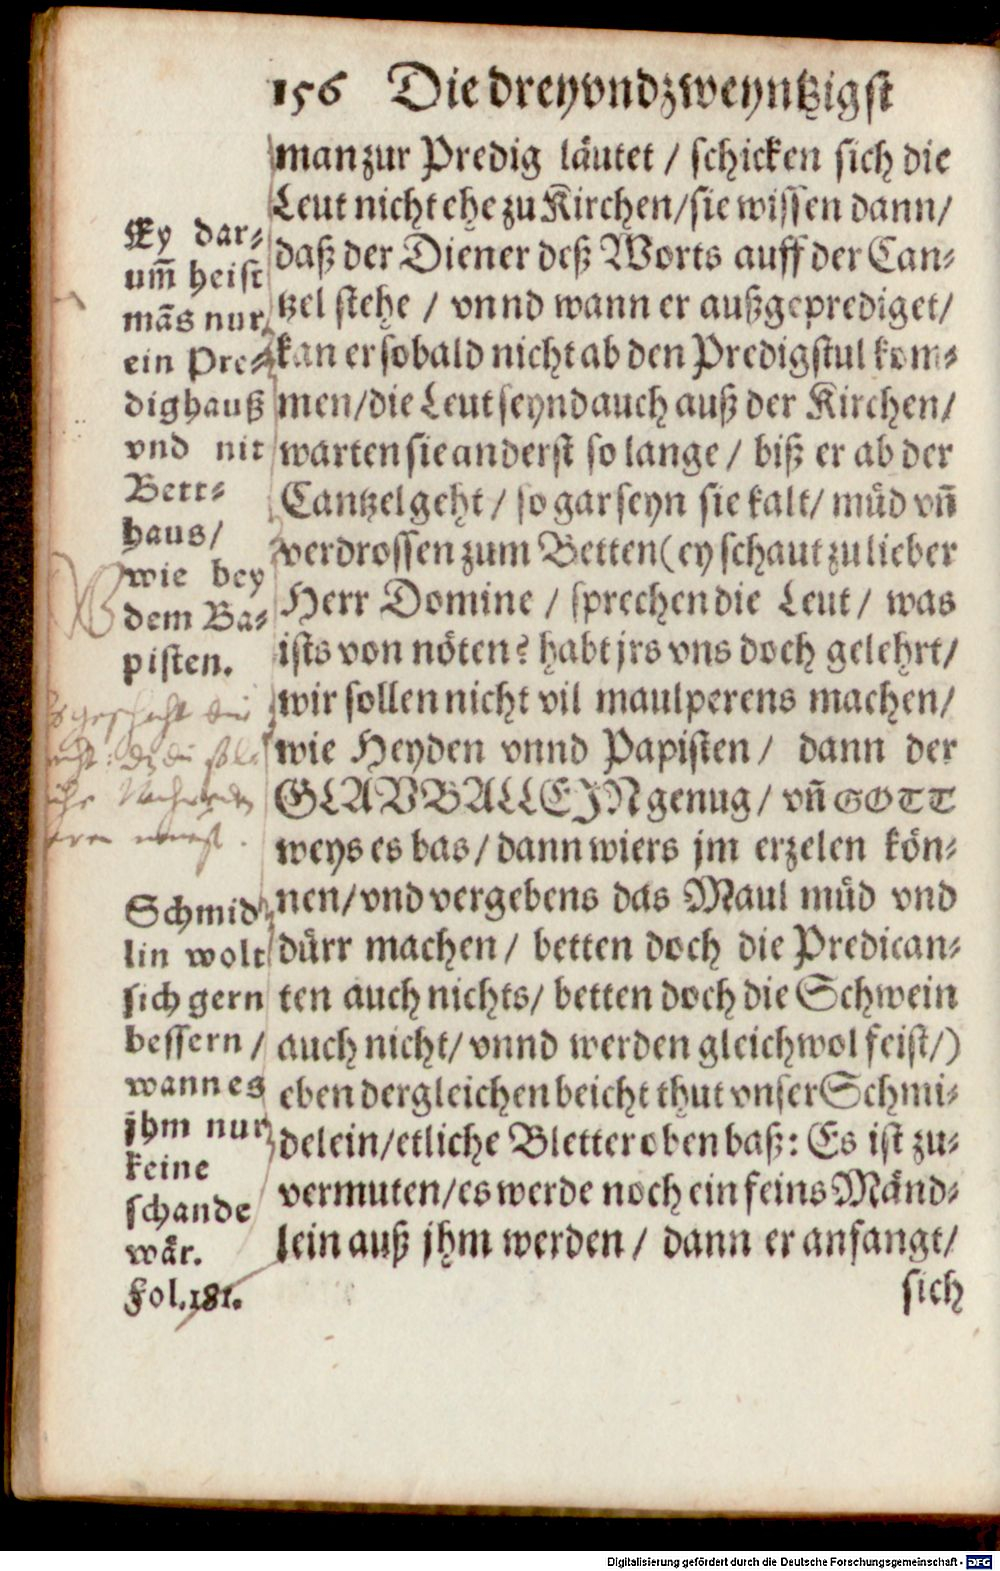 156 Die dreyvndzweyntzigst
man zur Predig läutet / schicken sich die
Leut nicht ehe zu Kirchen/sie wissen dann/
daß der Diener deß Worts auff der Can⸗
tzel stehe / vnnd wann er außgeprediget/
kan er sobald nicht ab den Predigstul kom⸗
men/die Leut seynd auch auß der Kirchen/
warten sie anderst so lange / biß er ab der
Cantzel geht / so gar seyn sie kalt/ müd vñ
verdrossen zum Betten (ey schaut zu lieber
Herr Domine / sprechen die Leut / was
ists von nöten? habt jrs vns doch gelehrt/
wir sollen nicht vil maulperens machen/
wie Heyden vnnd Papisten / dann der
GLAVB ALLEJN genug / vñ GOTT
weys es bas / dann wiers jm erzelen kön⸗
nen/vnd vergebens das Maul müd vnd
dürr machen / betten doch die Predican⸗
ten auch nichts/ betten doch die Schwein
auch nicht/ vnnd werden gleichwol feist/)
eben dergleichen beicht thut vnser Schmi⸗
delein/etliche Bletter oben baß: Es ist zu⸗
vermuten/es werde noch ein feins Mänd⸗
lein auß jhm werden / dann er anfangt/
sich
Ey dar⸗
um̃ heist
mãs nur
ein Pre⸗
dighauß
vnd nit
Bett⸗
haus/
wie bey
dem Ba⸗
pisten.
geschicht
Schmid
lin wolt
sich gern
bessern /
wann es
jhm nur
keine
schande
wår.
Fol.181.
Digitalisierung gefördert durch die Deutsche Forschungsgemeinschaft - DFG